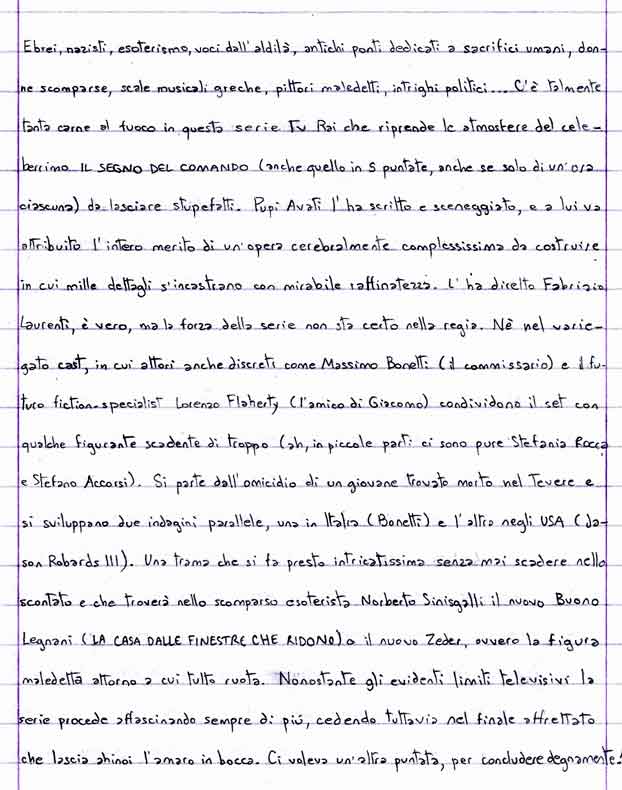 Ebrei, nazisti, esoterismo, voci dall'aldilà, antichi ponti dedicati a sacrifici umani, don-
ne scomparse, scale musicali greche, pittori maledetti, intrighi politici... C'è talmente
tanta carne al fuoco in questa serie Tv Rai che riprende le atmosfere del cele-
berrimo IL SEGNO DEL COMANDO (anche quello in 5 puntate, anche se solo di un'ora
ciascuna) da lasciare stupefatti. Pupi Avati l'ha scritto e sceneggiato, e a lui va
attribuito l'intero merito di un'opera cerebralmente complessissima da costruire
in cui mille dettagli s'incastrano con mirabile raffinatezza. L'ha diretto Fabrizio
Laurenti, è vero, ma la forza della serie non sta certo nella regia. Nè nel varie-
gato cast, in cui attori anche discreti come Massimo Bonetti (il commissario) e il fu-
turo fiction-specialist Lorenzo Flaherty (l'amico di Giacomo) condividono il set con
qualche figurante scadente di troppo (ah, in piccole parti ci sono pure Stefania Rocca
e Stefano Accorsi). Si parte dall'omicidio di un giovane trovato morto nel Tevere e
si sviluppano due indagini parallele, una in Italia (Bonetti) e l'altra negli USA (Ja-
son Robards III). Una trama che si fa presto intricatissima senza mai scadere nello
scontato e che troverà nello scomparso esoterista Norberto Sinisgalli il nuovo Buono
Legnani (LA CASA DALLE FINESTRE CHE RIDONO) o il nuovo Zeder, ovvero la figura
maledetta attorno a cui tutto ruota. Nonostante gli evidenti limiti televisivi la
serie procede affascinando sempre di più, cedendo tuttavia nel finale affrettato
che lascia ahinoi l'amaro in bocca. Ci voleva un'altra puntata, per concludere degnamente.